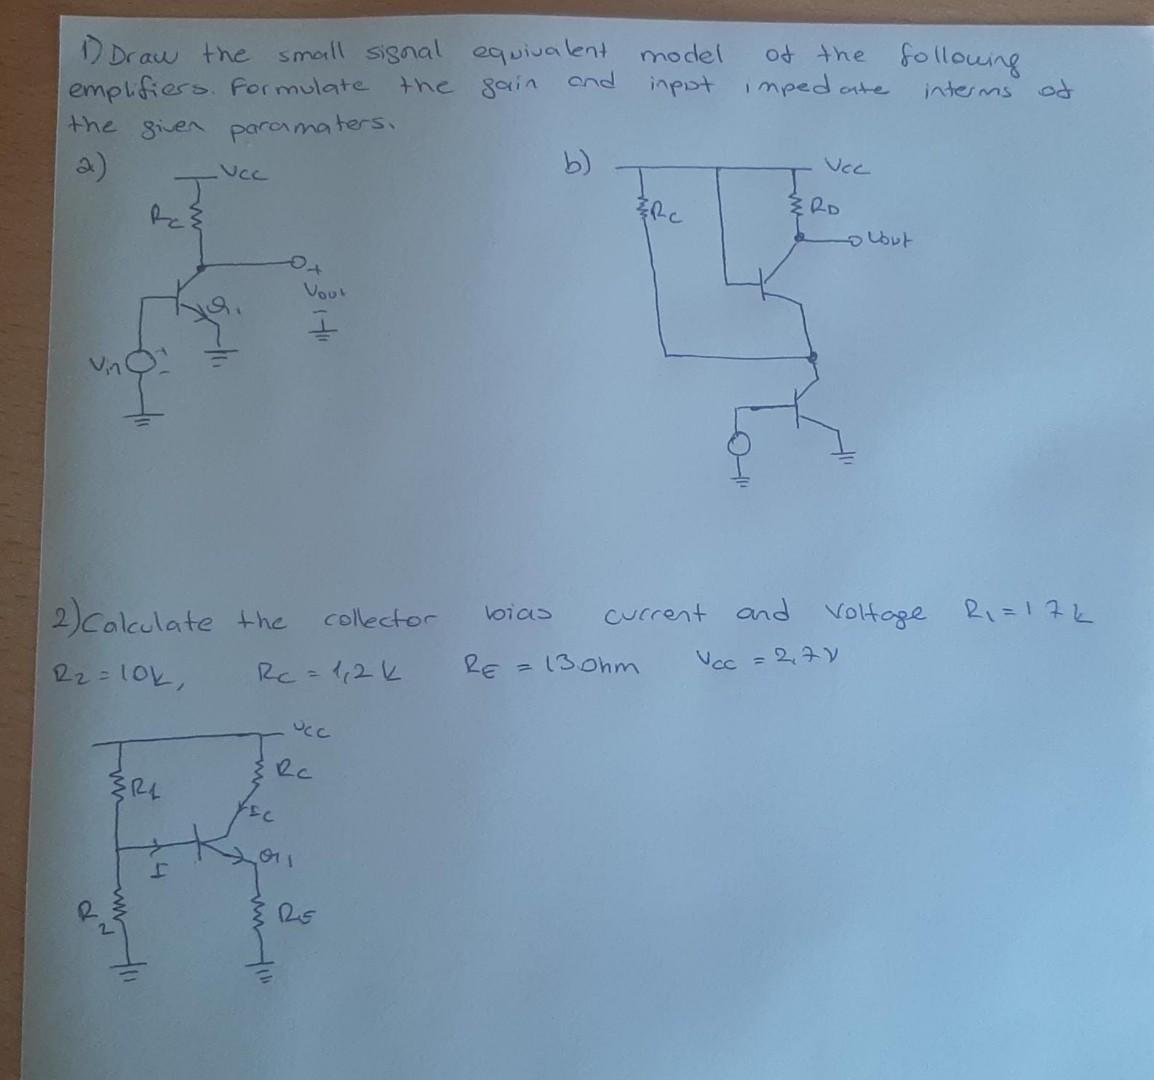 1) Draw the small signal equivalent model of the following
emplifiers. Formulate the gain and input impedate interms of
the given paramaters.
a)
Vcc
Rc
Q1
+
Vout
-
Vin
+
-
b)
Vcc
Rc
RD
Vout
2) Calculate the collector bias current and voltage R1 = 17k
R2 = 10k, Rc = 1,2k RE = 13ohm Vcc = 2,7V
Vcc
R1
Rc
Ic
I
Q1
R2
RE